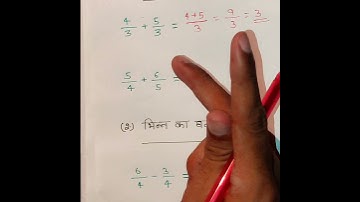 4/3 + 5/3 = 4+5/3 = 9/3 = 3
5/4 + 6/5 =
(2) भिन्न का
6/4 - 3/4 =